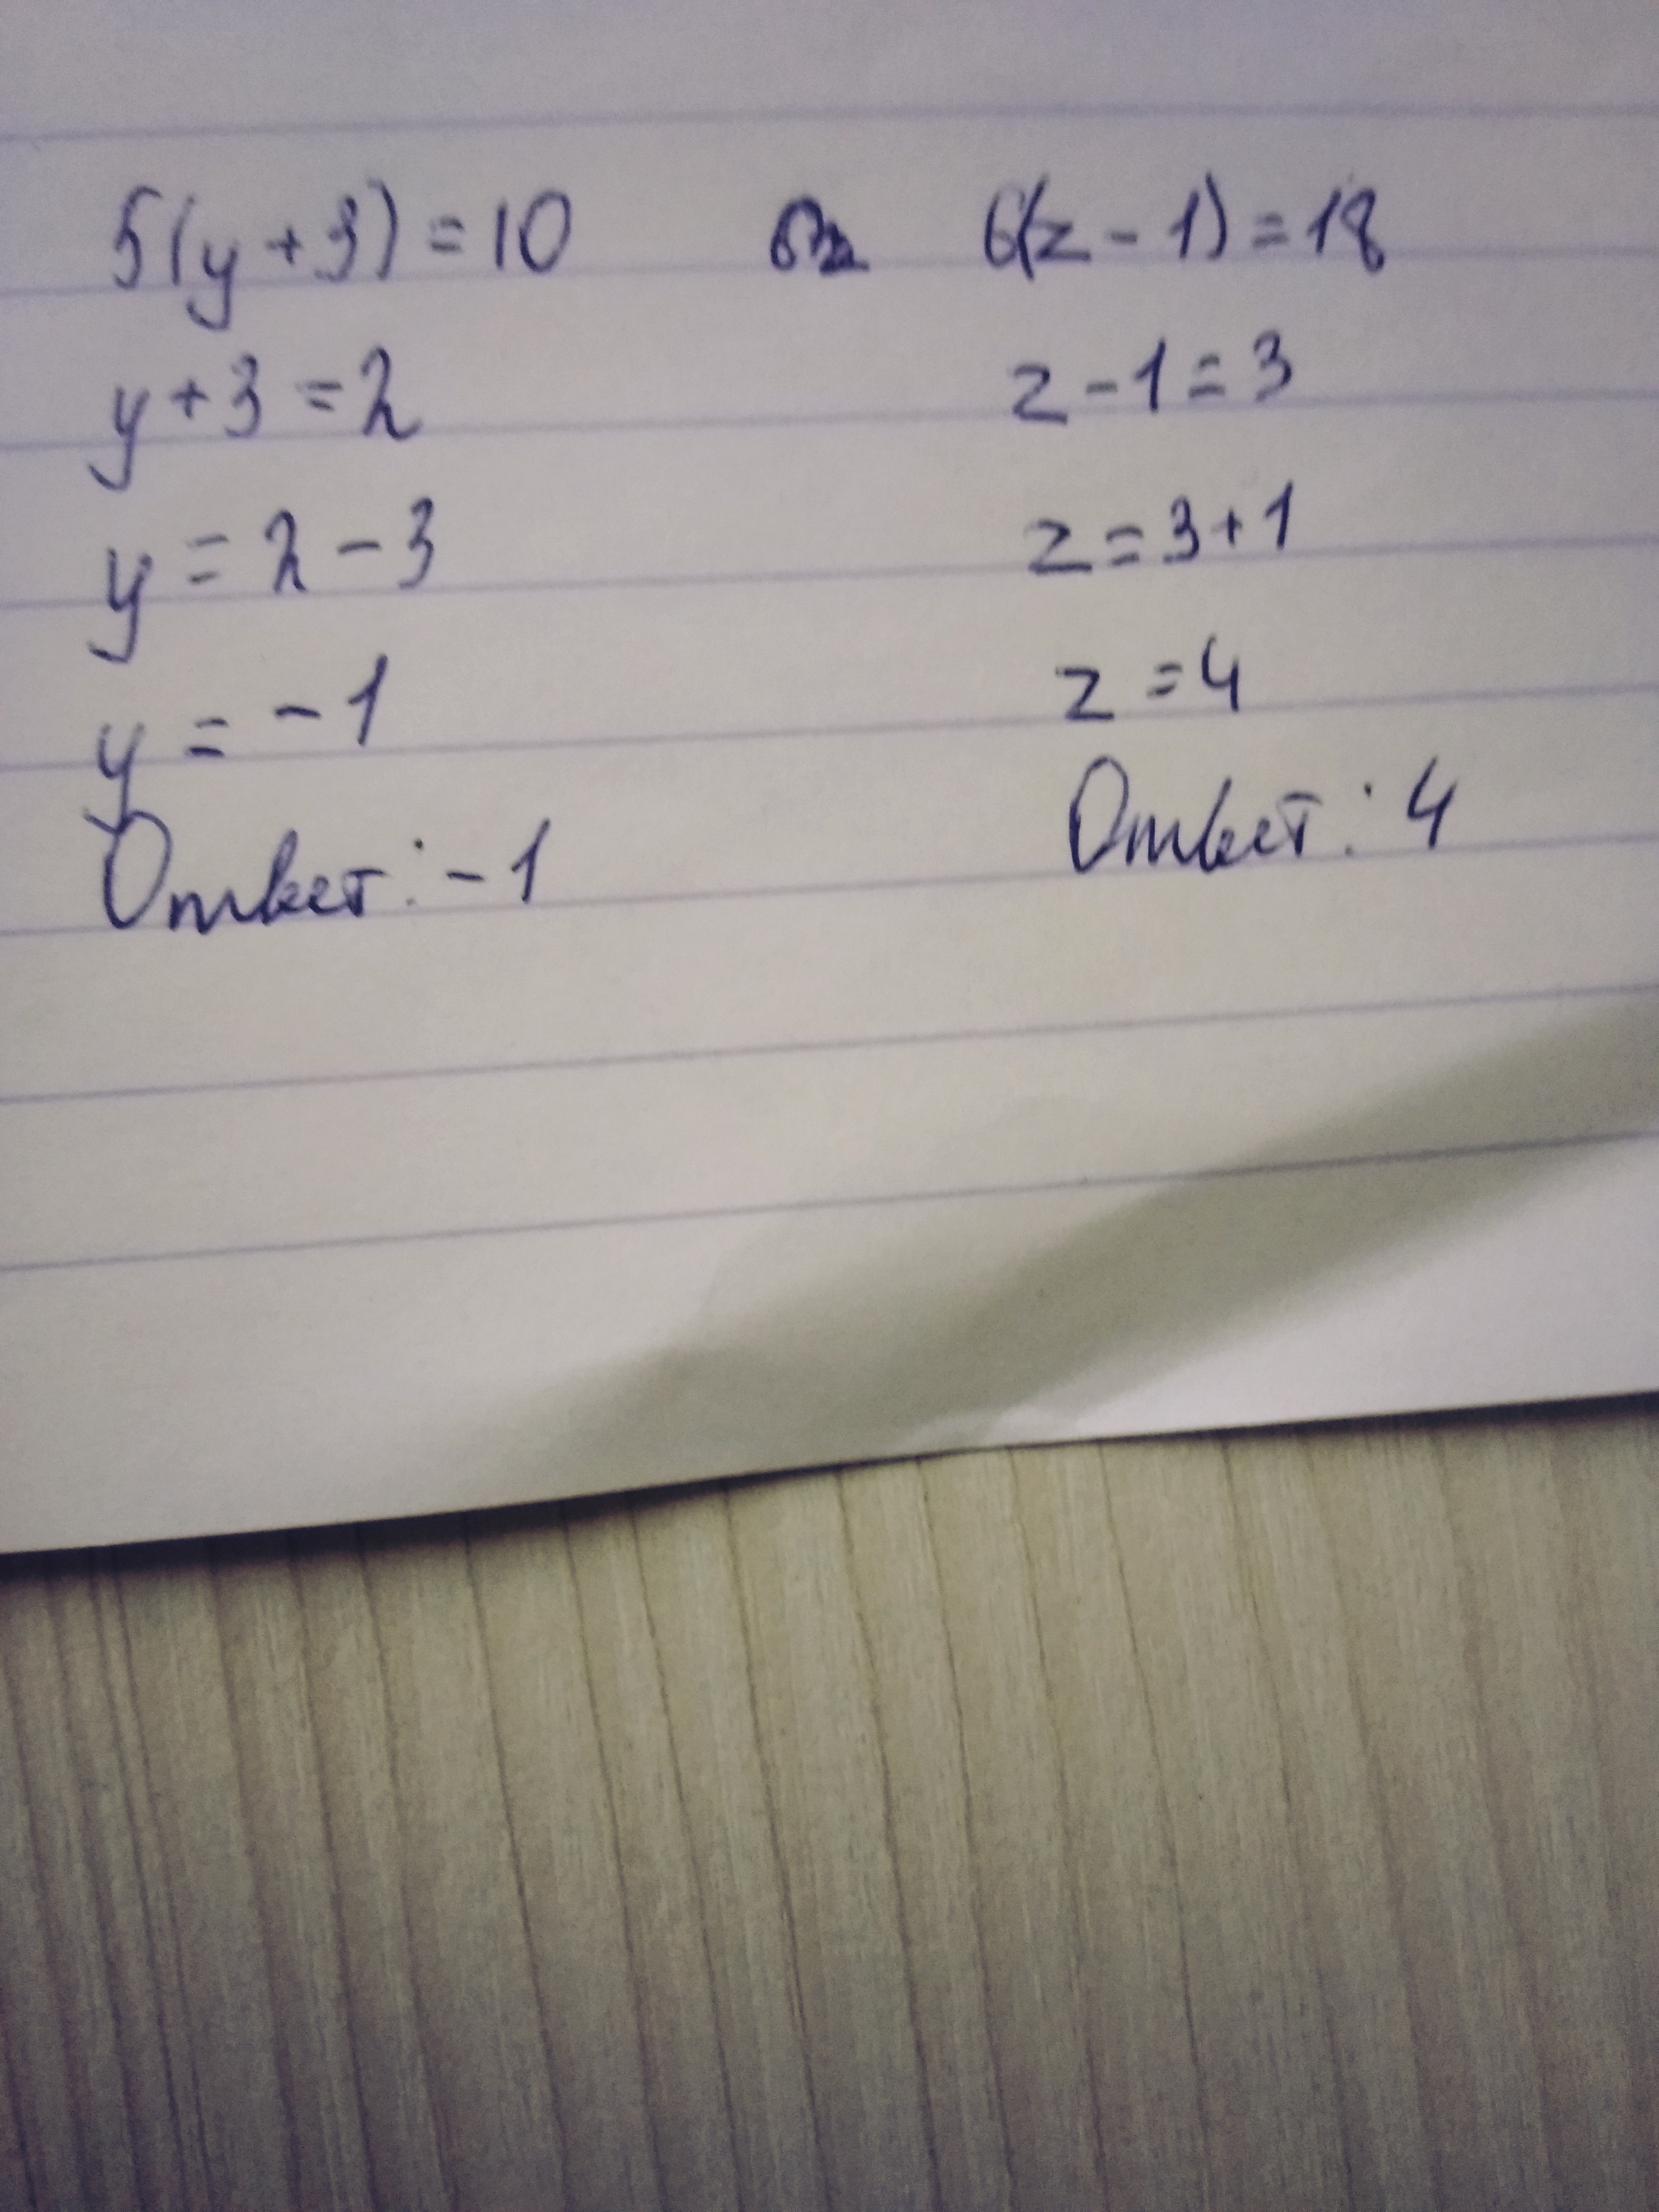 5(y+3)=10
y+3=2
y=2-3
y=-1
Ответ: -1
6(z-1)=18
z-1=3
z=3+1
z=4
Ответ: 4